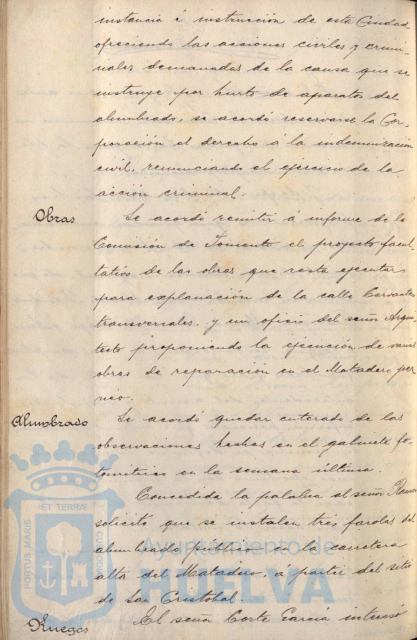 instancia é instrucción de esta Ciudad
ofreciendo las acciones civiles y crimi-
nales demanadas de la causa que se
instruye por hurto de aparatos del
alumbrado, se acordó reservarse la Cor-
poración el derecho á la indemnización
civil, renunciando el ejercicio de la
acción criminal.
Obras
Se acordó remitir á informe de la
Comisión de Fomento el proyecto facul-
tativo de las obras que resta ejecutar
para explanación de la calle Cervantes
transversales, y un oficio del señor Arqui-
tecto proponiendo la ejecución de varias
obras de reparación en el Matadero pú-
blico.
Alumbrado
Se acordó quedar enterado de las
observaciones hechas en el gabinete fo-
tométrico en la semana última.
Concedida la palabra al señor
solicitó que se instalen tres farolas del
alumbrado público en la carretera
alta del Matadero, á partir del sitio
de San Cristobal
Ruegos
El señor Corte García interesó
Ayuntamiento de
HUELVA
PORTUS MARIS
ET TERRÆ
CUSTODIA